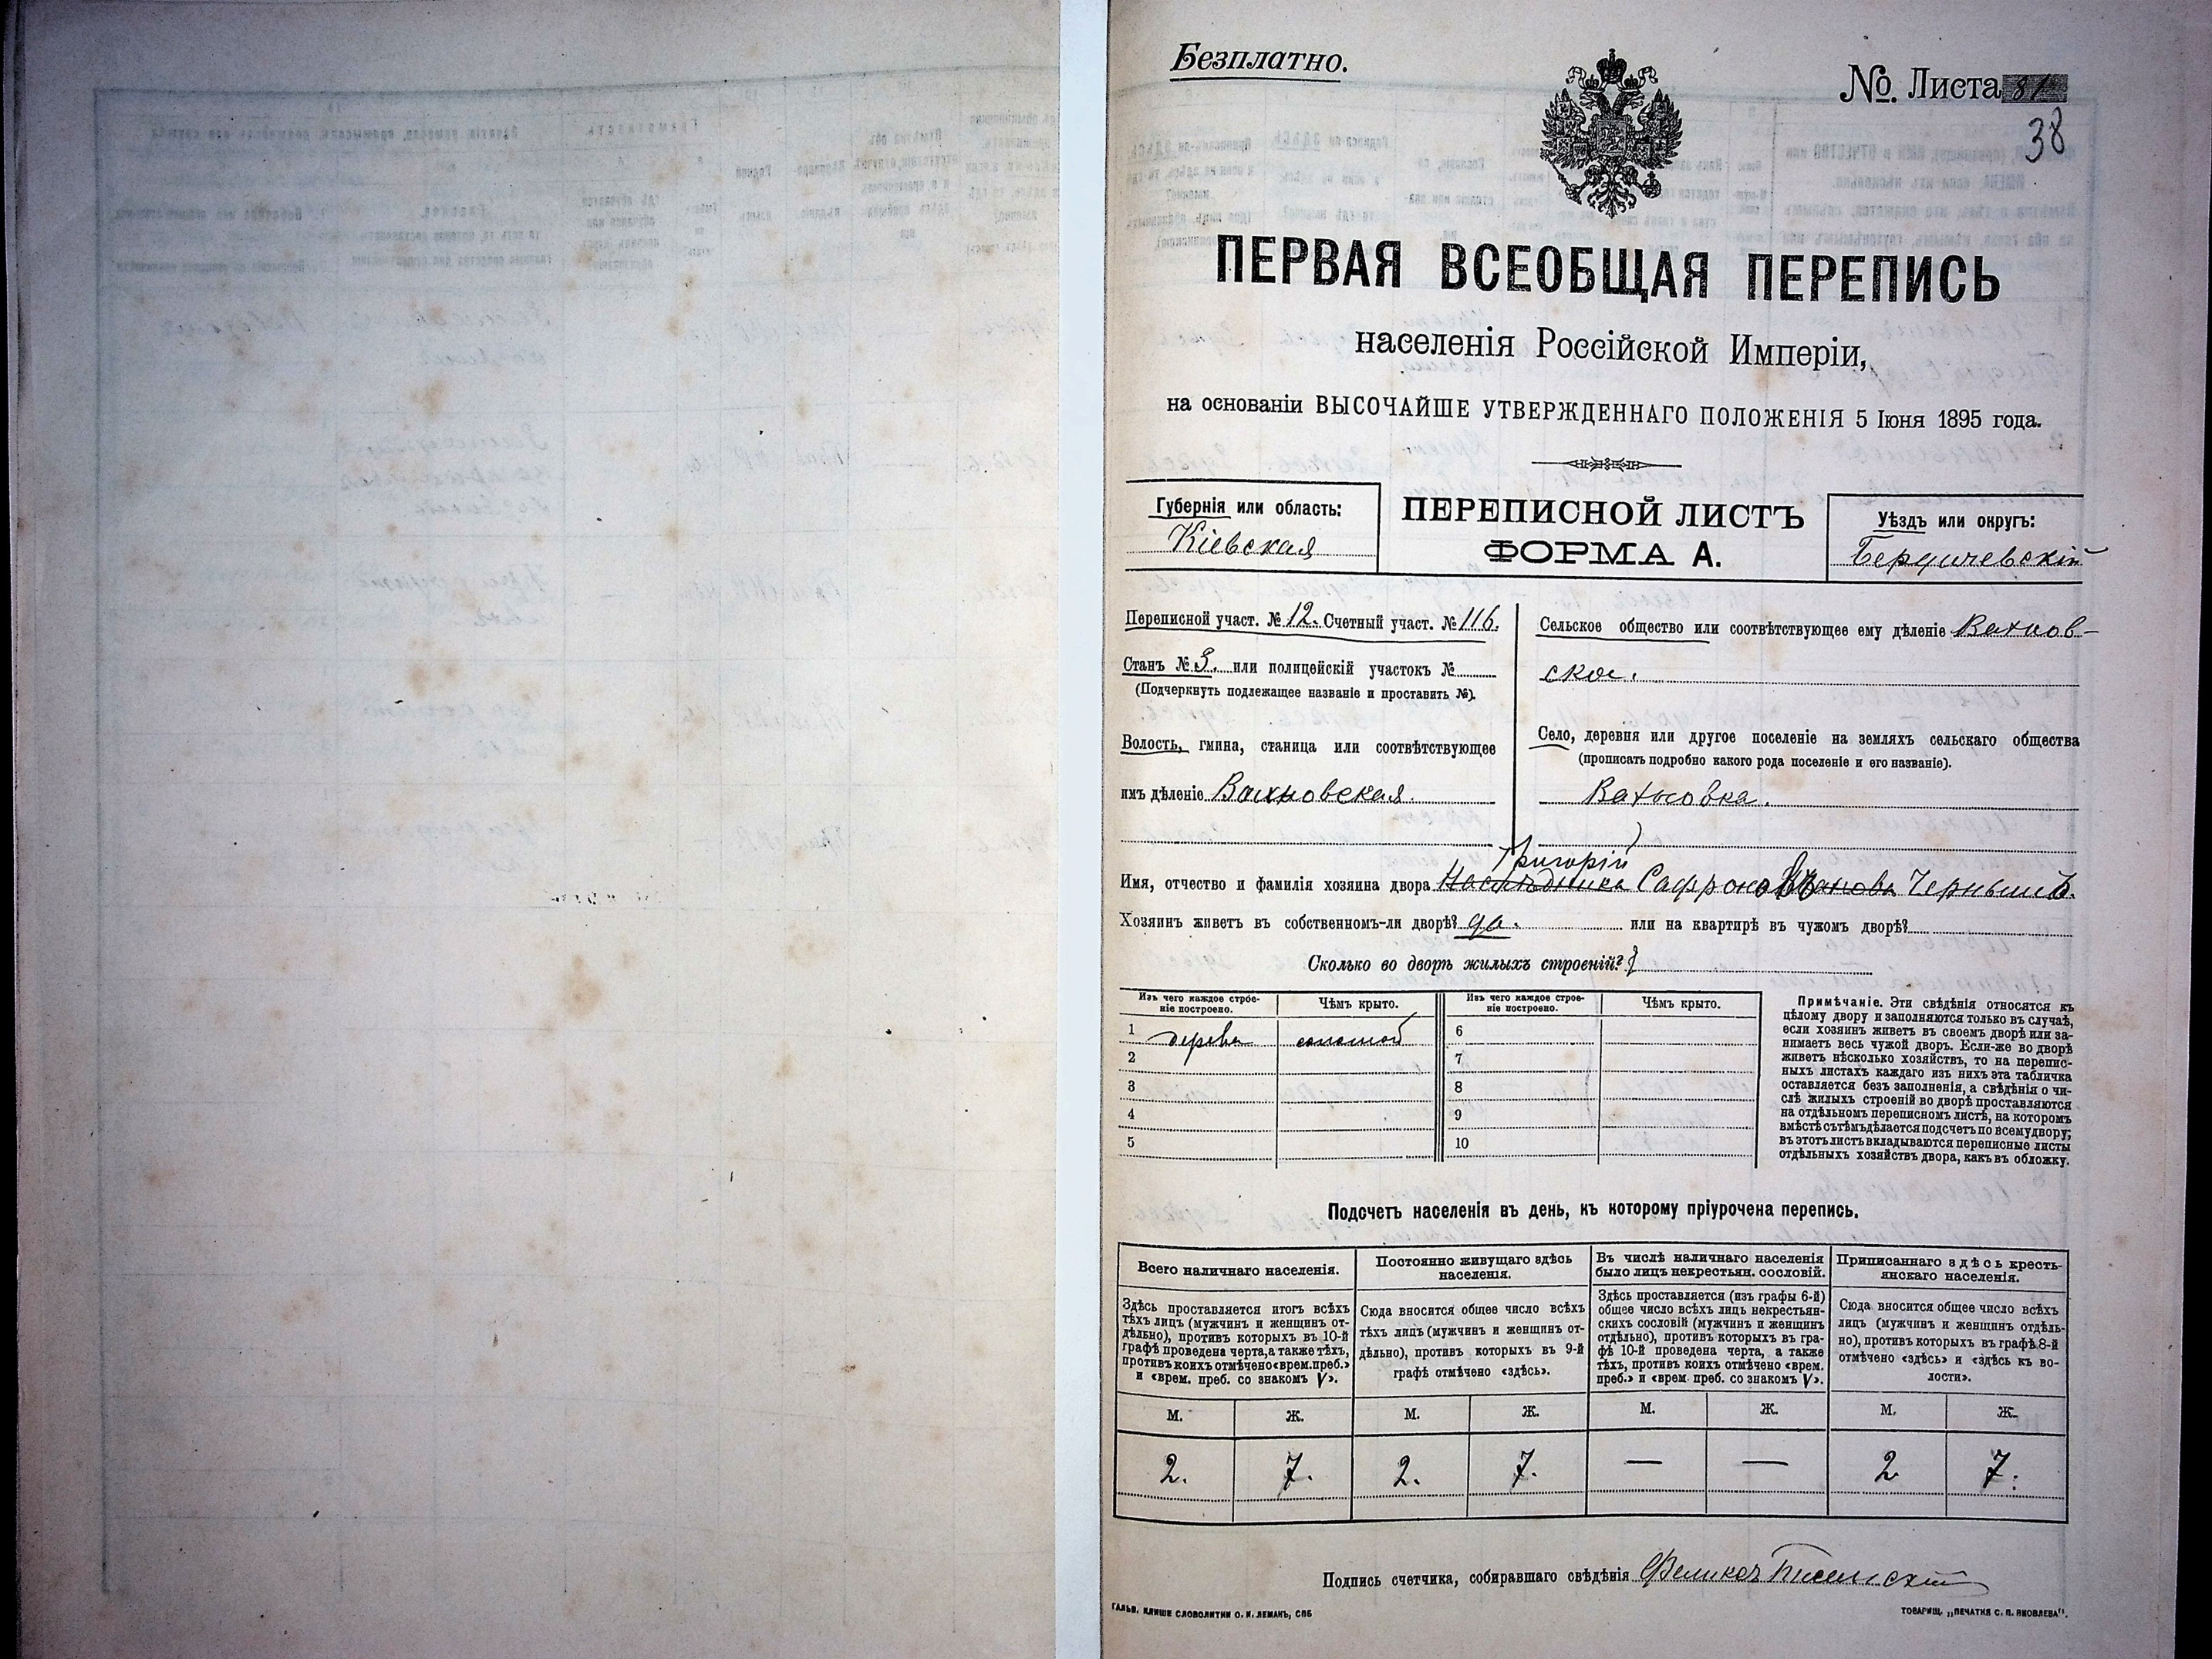 Безплатно.
№ Листа 81
38
ПЕРВАЯ ВСЕОБЩАЯ ПЕРЕПИСЬ
населенія Россійской Имперіи,
на основаніи ВЫСОЧАЙШЕ УТВЕРЖДЕННАГО ПОЛОЖЕНІЯ 5 Іюня 1895 года.
Губернія или область:
Кіевская
ПЕРЕПИСНОЙ ЛИСТЪ
ФОРМА А.
Уѣздъ или округъ:
Бердичевскій
Переписной участ. № 12. Счетный участ. № 116.
Станъ № 3. или полицейскій участокъ №
(Подчеркнуть подлежащее названіе и проставить №).
Волость, гмина, станица или соотвѣтствующее
имъ дѣленіе Вахновская.
Сельское общество или соотвѣтствующее ему дѣленіе Вахнов-
ское.
Село, деревня или другое поселеніе на земляхъ сельскаго общества
(прописать подробно какого рода поселеніе и его названіе).
Вахновка.
Григорій
Имя, отчество и фамилія хозяина двора Наслѣдника Сафронов Чернышъ.
Хозяинъ живетъ въ собственномъ-ли дворѣ? да. или на квартирѣ въ чужомъ дворѣ?
Сколько во дворѣ жилыхъ строеній?
Изъ чего каждое строе-
ніе построено.
Чѣмъ крыто.
Изъ чего каждое строе-
ніе построено.
Чѣмъ крыто.
1 дерева соломой 6
2 7
3 8
4 9
5 10
Примѣчаніе. Эти свѣдѣнія относятся къ
цѣлому двору и заполняются только въ случаѣ,
если хозяинъ живетъ въ своемъ дворѣ или за-
нимаетъ весь чужой дворъ. Если-же во дворѣ
живетъ нѣсколько хозяйствъ, то на перепис-
ныхъ листахъ каждаго изъ нихъ эта табличка
оставляется безъ заполненія, а свѣдѣнія о чи-
слѣ жилыхъ строеній во дворѣ проставляются
на отдѣльномъ переписномъ листѣ, на которомъ
вмѣстѣ съ тѣмъ дѣлается подсчетъ по всему двору;
въ этотъ листъ вкладываются переписные листы
отдѣльныхъ хозяйствъ двора, какъ въ обложку.
Подсчетъ населенія въ день, къ которому пріурочена перепись.
Всего наличнаго населенія.
Постоянно живущаго здѣсь
населенія.
Въ числѣ наличнаго населенія
было лицъ некрестьян. сословій.
Приписаннаго здѣсь кресть-
янскаго населенія.
Здѣсь проставляется итогъ всѣхъ
тѣхъ лицъ (мужчинъ и женщинъ от-
дѣльно), противъ которыхъ въ 10-й
графѣ проведена черта, а также тѣхъ,
противъ коихъ отмѣчено «врем. преб.»
и «врем. преб. со знакомъ V».
Сюда вносится общее число всѣхъ
тѣхъ лицъ (мужчинъ и женщинъ от-
дѣльно), противъ которыхъ въ 9-й
графѣ отмѣчено «здѣсь».
Здѣсь проставляется (изъ графы 6-й)
общее число всѣхъ лицъ некрестьян-
скихъ сословій (мужчинъ и женщинъ
отдѣльно), противъ которыхъ въ гра-
фѣ 10-й проведена черта, а также
тѣхъ, противъ коихъ отмѣчено «врем.
преб.» и «врем. преб. со знакомъ V».
Сюда вносится общее число всѣхъ
лицъ (мужчинъ и женщинъ отдѣль-
но), противъ которыхъ въ графѣ 8-й
отмѣчено «здѣсь» и «здѣсь къ во-
лости».
М. Ж. М. Ж. М. Ж. М. Ж.
2. 7. 2. 7. — — 2 7.
Подпись счетчика, собиравшаго свѣдѣнія
ГАЛЬВ. КЛИШЕ СЛОВОЛИТНИ О. И. ЛЕМАНЪ, СПБ
ТОВАРИЩ. „ПЕЧАТНЯ С. П. ЯКОВЛЕВА".